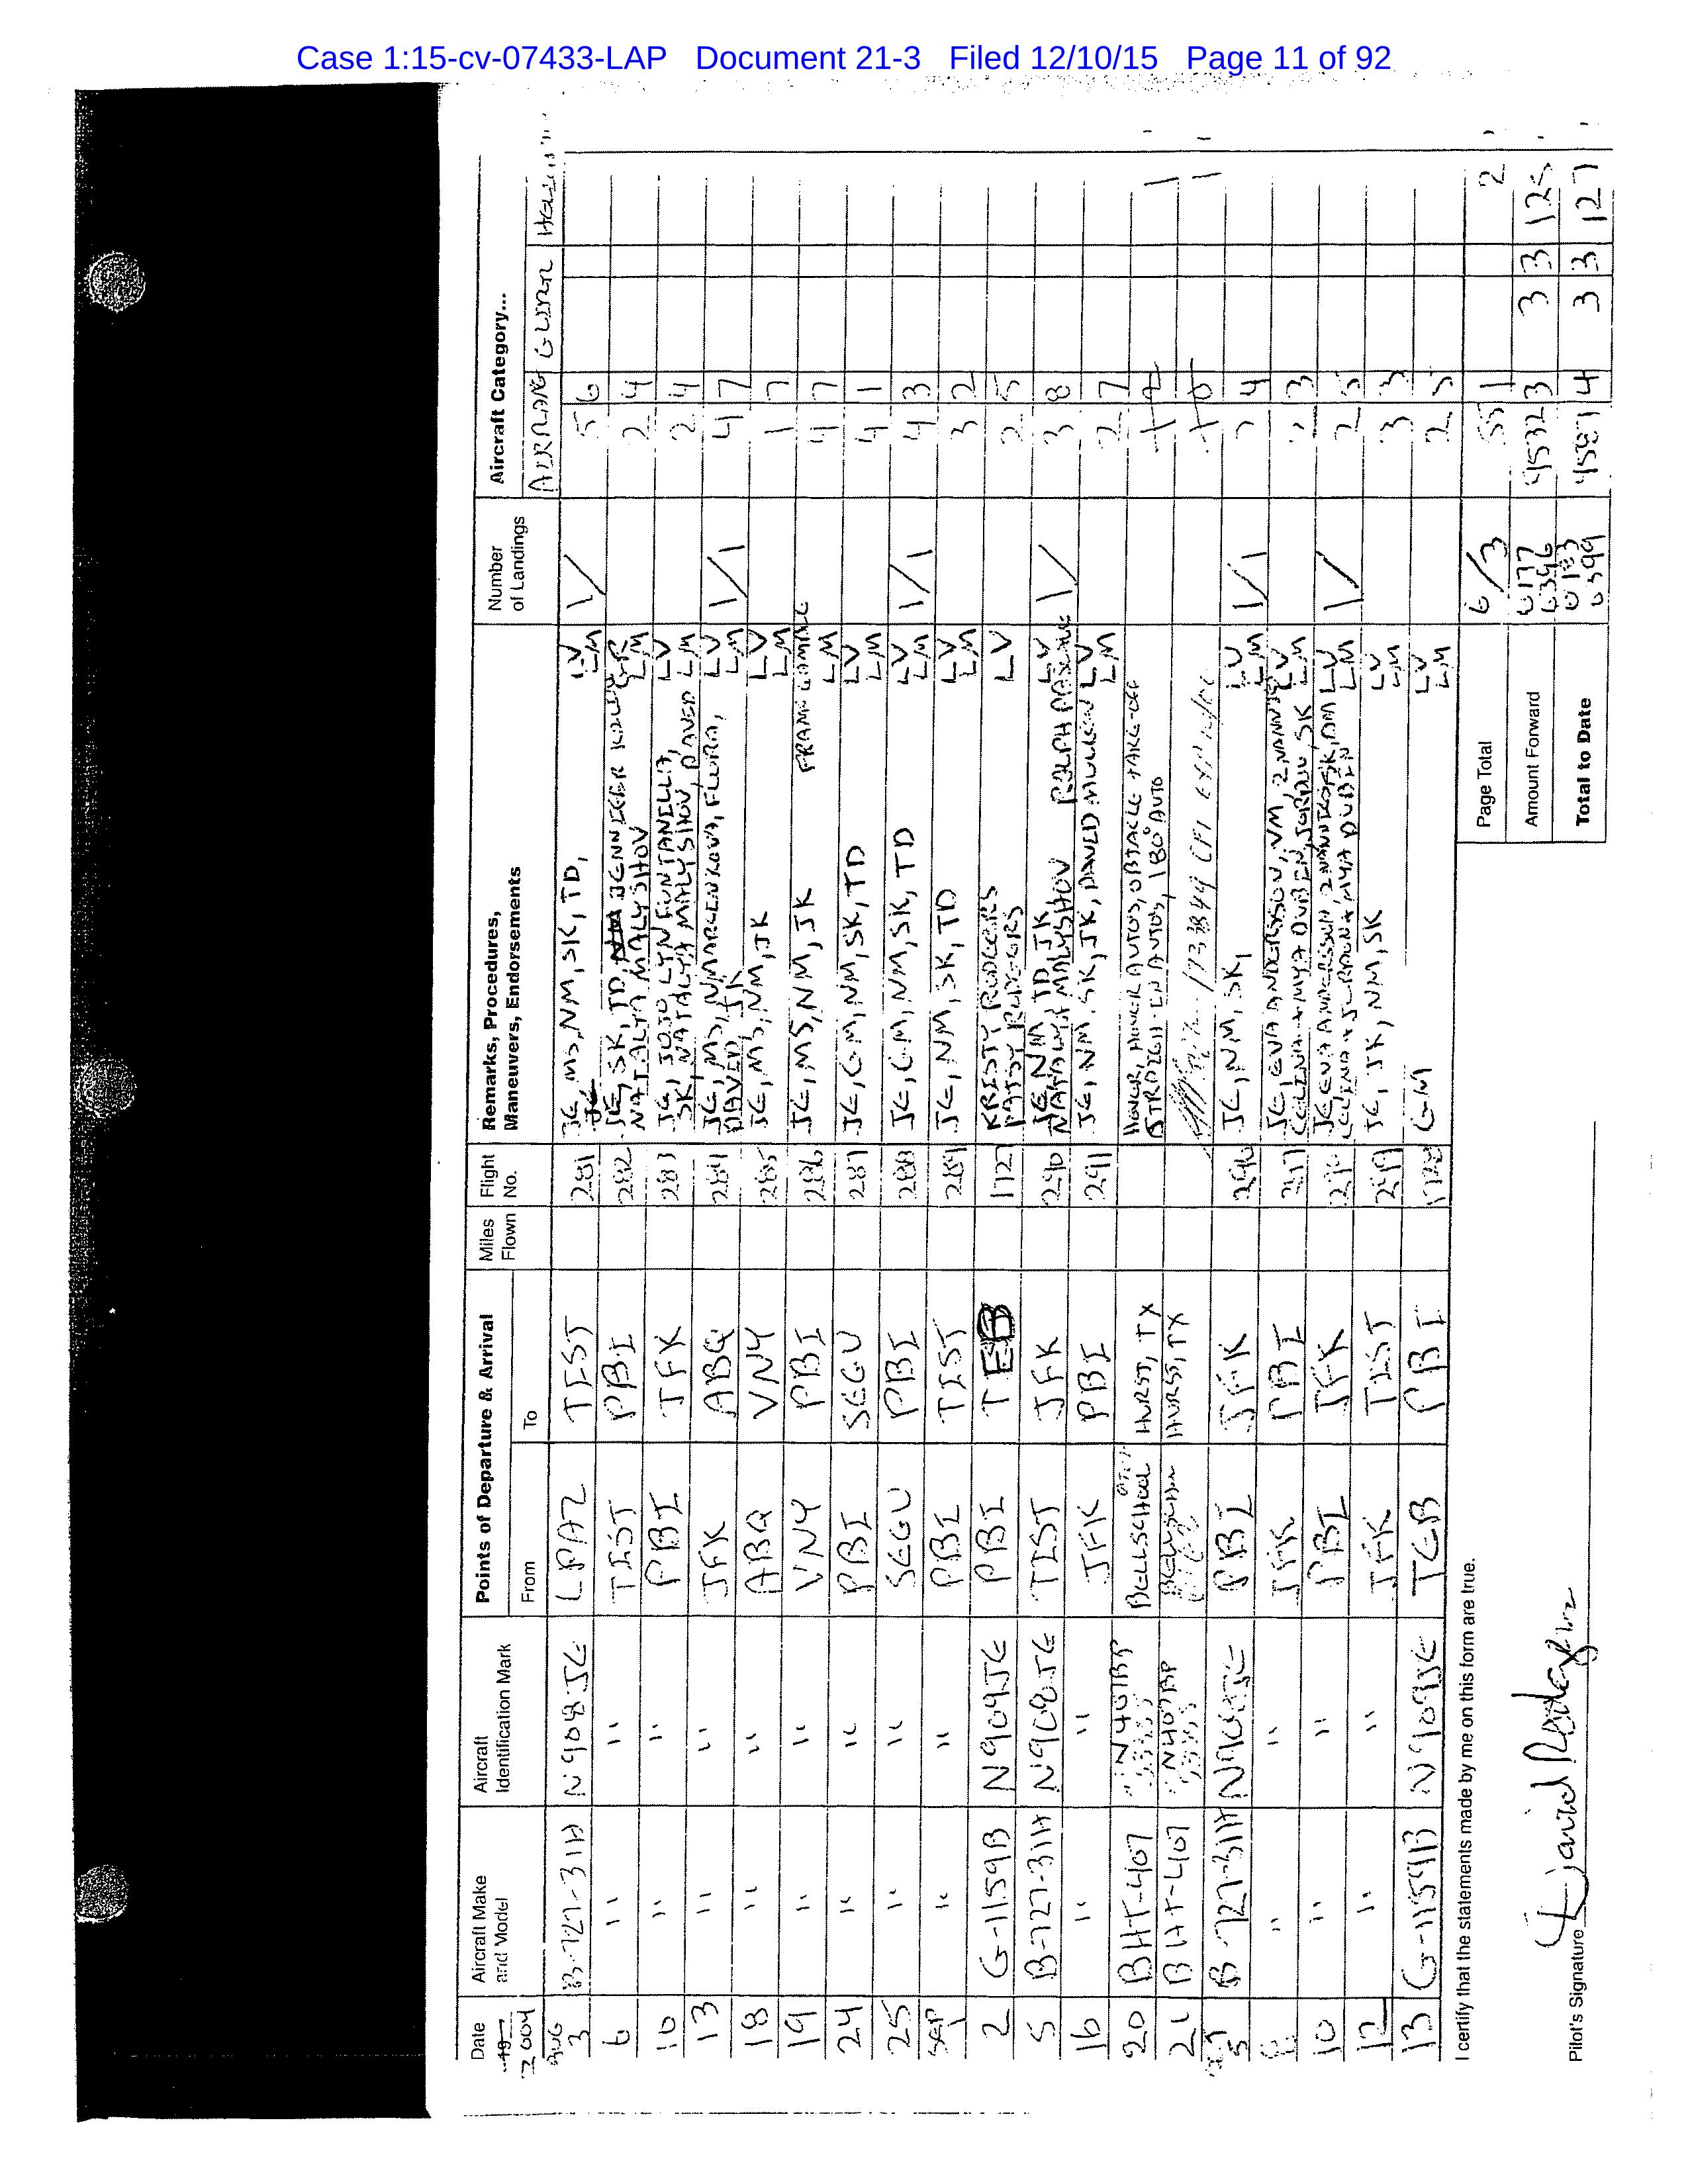 Case 1:15-cv-07433-LAP Document 21-3 Filed 12/10/15 Page 11 of 92
Date Aircraft Make and Model Aircraft Identification Mark Points of Departure & Arrival Miles Flown Flight No. Remarks, Procedures, Maneuvers, Endorsements Number of Landings Aircraft Category...
2004 From To
AUG 3 B-727-31H N908JE LPAZ TIST 281 JE, MS, NM, SK, TD, LV LM 1/ 5 6
6 " " TIST PBI 282 JE, SK, TD, NATALYA MALYSHOV LM 2 4
10 " " PBI JFK 283 JE, JOJO LYN FONTANELLA, SK, NATALYA MALYSHOV, DAVED LV LM 2 4
13 " " JFK ABQ 284 JE, MS, DAVED JK LV LM 1/1 4 7
18 " " ABQ VNY 285 JE, MS, NM, JK LV LM 1 7
19 " " VNY PBI 286 JE, MS, NM, JK LM 4 7
24 " " PBI SEGU 287 JE, GM, NM, SK, TD LV LM 4 1
25 " " SEGU PBI 288 JE, GM, NM, SK, TD LV LM 1/1 4 3
SEP 1 " " PBI TIST 289 JE, NM, SK, TD LV LM 3 2
2 G-1159B N909JE PBI TEB 1727 KRISTY RODGERS PATSY RODGERS LV 2 5
5 B-727-31H N908JE TIST JFK 290 JE, NM, TD, JK NATALYA MALYSHOV RALPH PASCALE LV 1/ 3 8
16 " " JFK PBI 291 JE, NM, SK, JK, DAVED MULLEN LV LM 2 7
20 BHT-407 N407BP BELLSCHOOL HURST, TX HOVER, HOVER AUTOS, OBSTACLE TAKE-OFF STRAIGHT-IN AUTOS, 180° AUTO
21 BHT-407 N407BP HURST, TX
5 B-727-31H N908JE PBI JFK 296 JE, NM, SK, LV LM 1/1 2 4
" " JFK PBI 297 JE, EVA ANDERSSON, NM, 2 NANNIES CELINA + MYA DUBIN, JORDAN, SK LV LM 2 3
10 " " PBI JFK JE EVA ANDERSSON, 2 NANNIES, SK, DM CELINA + MYA DUBIN LV LM 1/ 2 5
12 " " JFK TIST 299 JE, JK, NM, SK LV LM 3 3
13 G-1159B N909JE TEB PBI 1728 GM LV LM 2 5
I certify that the statements made by me on this form are true.
Page Total 6/3 55 1 2
Amount Forward 6177 6396 4532 3 3 3 125
Total to Date 6183 6399 4587 4 3 3 127
Pilot's Signature